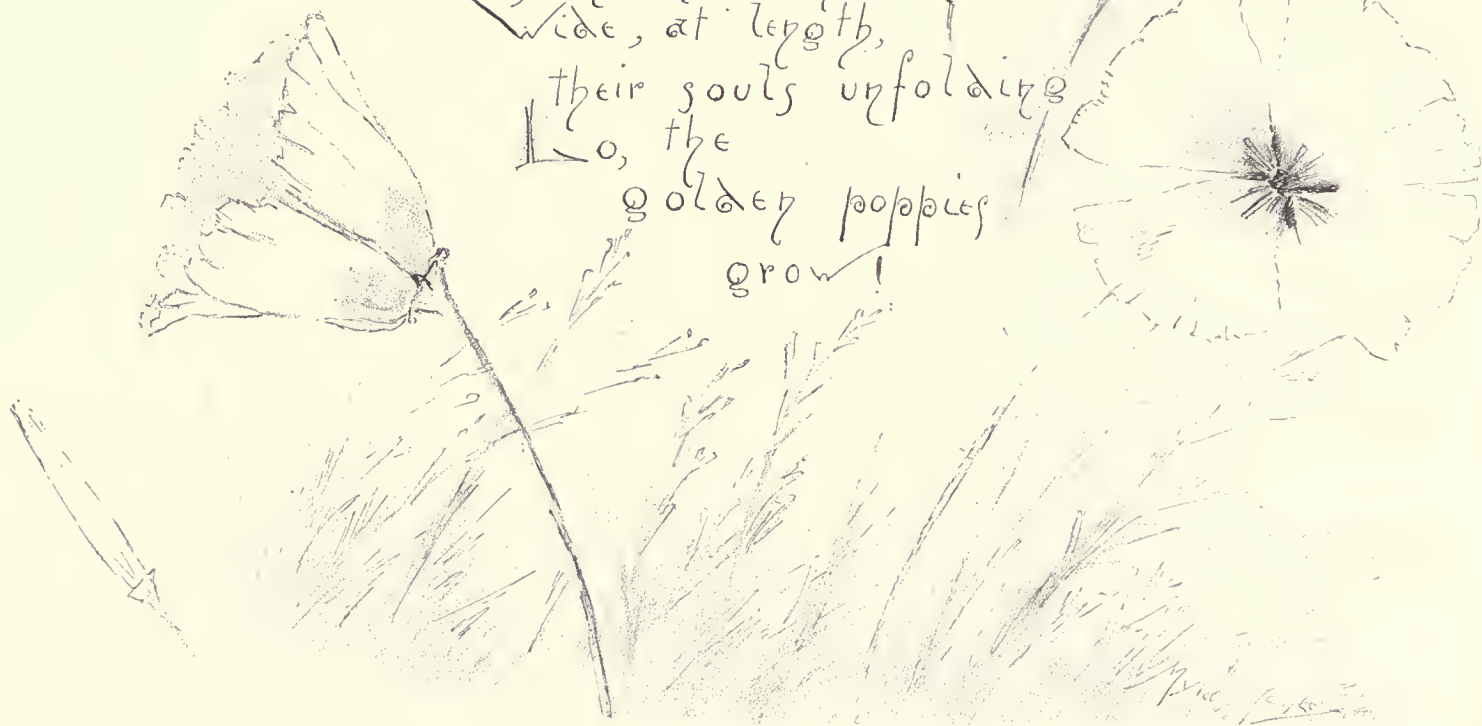 Wide, at length,
their souls unfolding
Lo, the
golden poppies
grow!